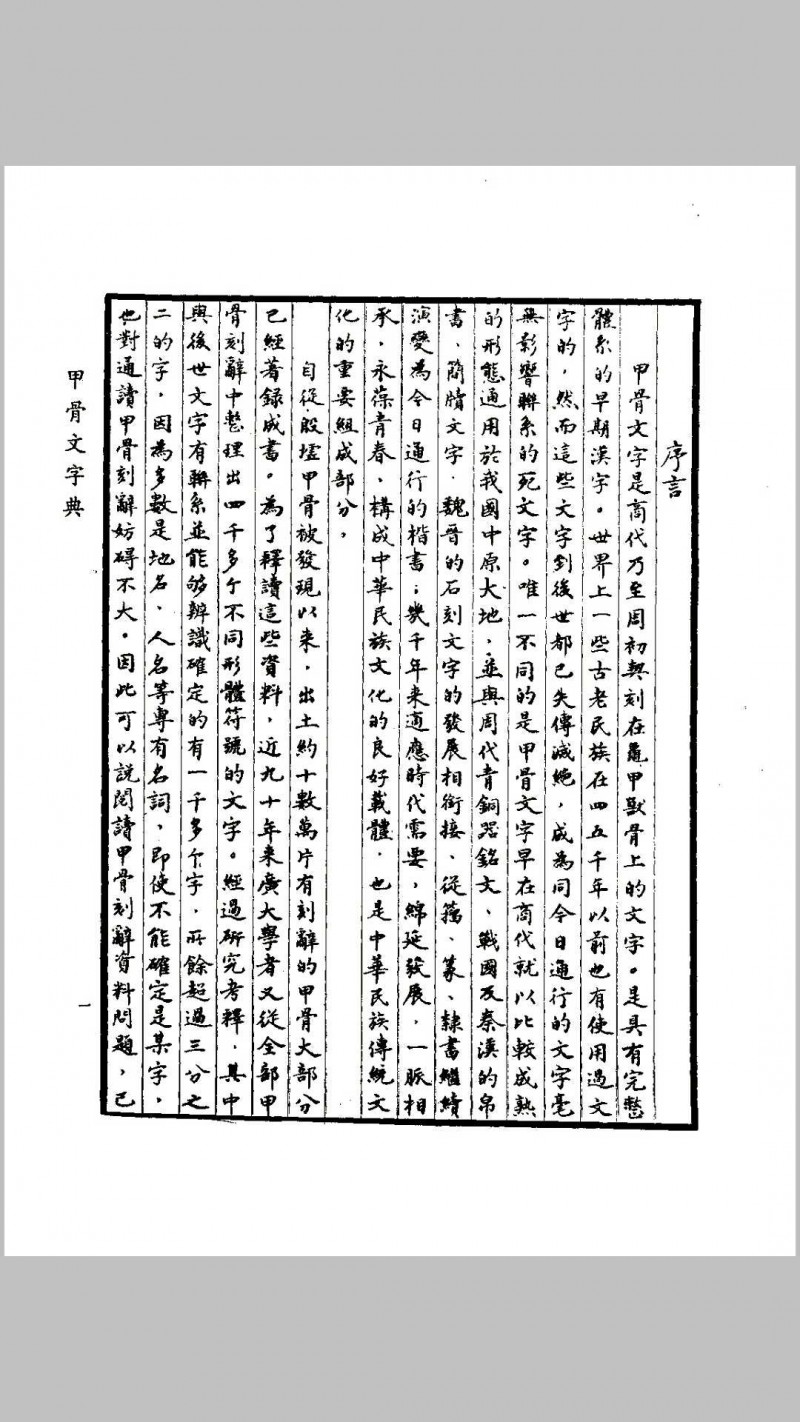 序言
甲骨文字是商代乃至周初契刻在龜甲獸骨上的文字。是具有完整
體系的早期漢字。世界上一些古老民族在四五千年以前也有使用過文
字的，然而這些文字到後世都已失傳滅絕，成為同今日通行的文字毫
無影響聯系的死文字。唯一不同的是甲骨文字早在商代就以比較成熟
的形態通用於我國中原大地，並與周代青銅器銘文、戰國及秦漢的帛
書、簡牘文字、魏晉的石刻文字的發展相銜接、從籀、篆、隸書繼續
演變為今日通行的楷書；幾千年来適應時代需要，綿延發展，一脈相
承，永葆青春，構成中華民族文化的良好載體，也是中華民族傳統文
化的重要組成部分，
自從殷墟甲骨被發現以来，出土約十數萬片有刻辭的甲骨大部分
已經著錄成書。為了釋讀這些資料，近九十年来廣大學者又從全部甲
骨刻辭中整理出四千多个不同形體符號的文字。經過研究考釋，其中
與後世文字有聯系並能够辨識確定的有一千多个字，所餘超過三分之
二的字，因為多數是地名，人名等專有名詞，即使不能確定是某字，
也對通讀甲骨刻辭妨碍不大。因此可以說閱讀甲骨刻辭資料問題，已
甲骨文字典
一